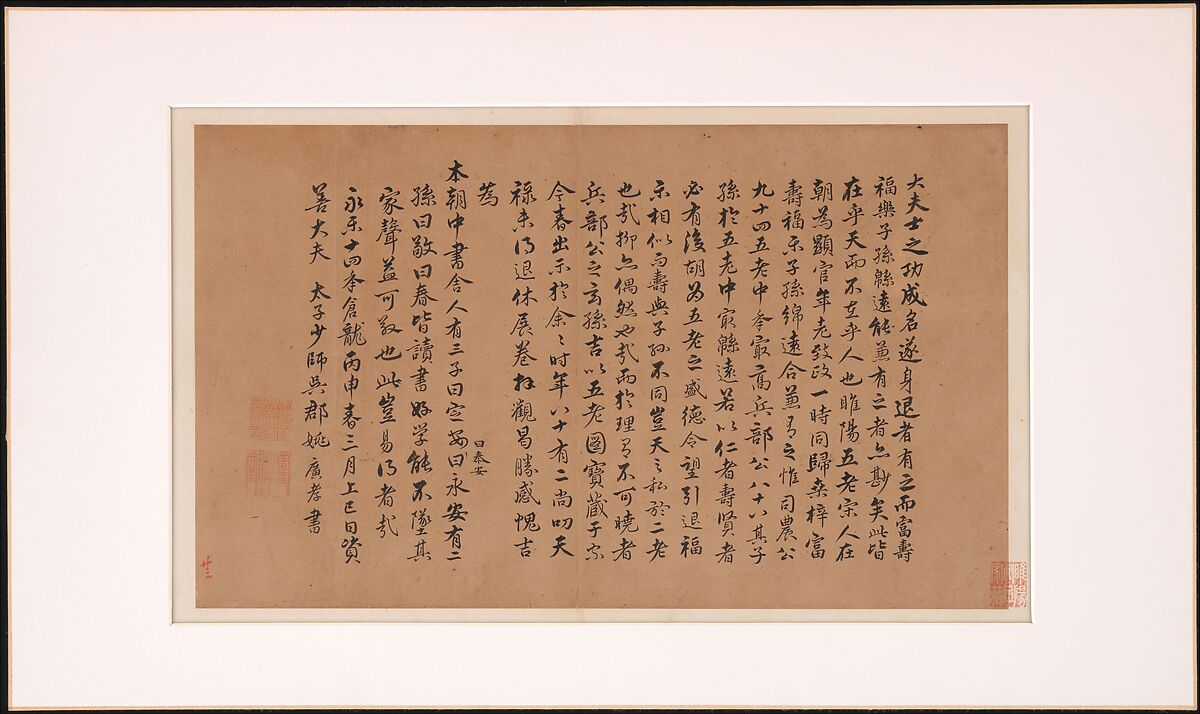 大夫士之功成名遂身退者有之而富壽
福樂子孫緜遠能兼有之者亦尠矣此皆
在乎天而不在乎人也睢陽五老宋人在
朝為顯官年老致政一時同歸桑梓富
壽福樂子孫綿遠合兼有之惟司農公
九十四五老中年冣高兵部公八十八其子
孫於五老中冣緜遠若以仁者壽賢者
必有後胡為五老之盛德令望引退福
樂相似而壽與子孫不同豈天之私於二老
也哉抑亦偶然也哉而於理有不可曉者
兵部公之玄孫吉以五老圖寶藏于家
今春出示於余〻時年八十有二尚叨天
祿未得退休展卷拜觀曷勝感愧吉
為
本朝中書舍人有三子曰定安曰永安有二
曰泰安
孫曰敬曰春皆讀書好学能不墜其
家聲益可敬也此豈易得者哉
永樂十四年倉龍丙申春三月上巳日資
善大夫 太子少師吳郡姚 廣孝書
廿二